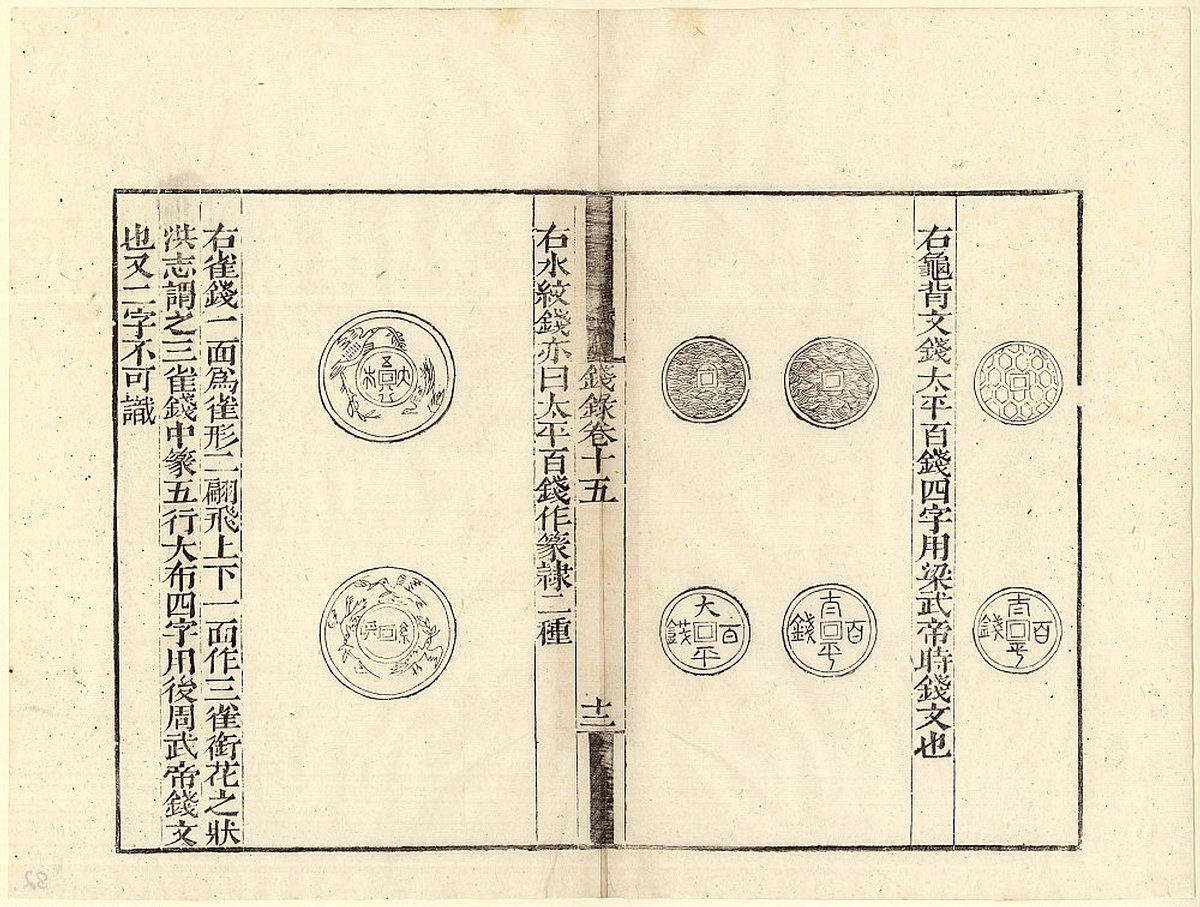 百錢平
右龜背文錢太平百錢四字用梁武帝時錢文也
百錢平
大平百錢
右水紋錢亦曰太平百錢作篆隸二種
錢錄卷十五
十二
五行大布
右雀錢一面爲雀形二翩飛上下一面作三雀銜花之狀
洪志謂之三雀錢中篆五行大布四字用後周武帝錢文
也又二字不可識
82